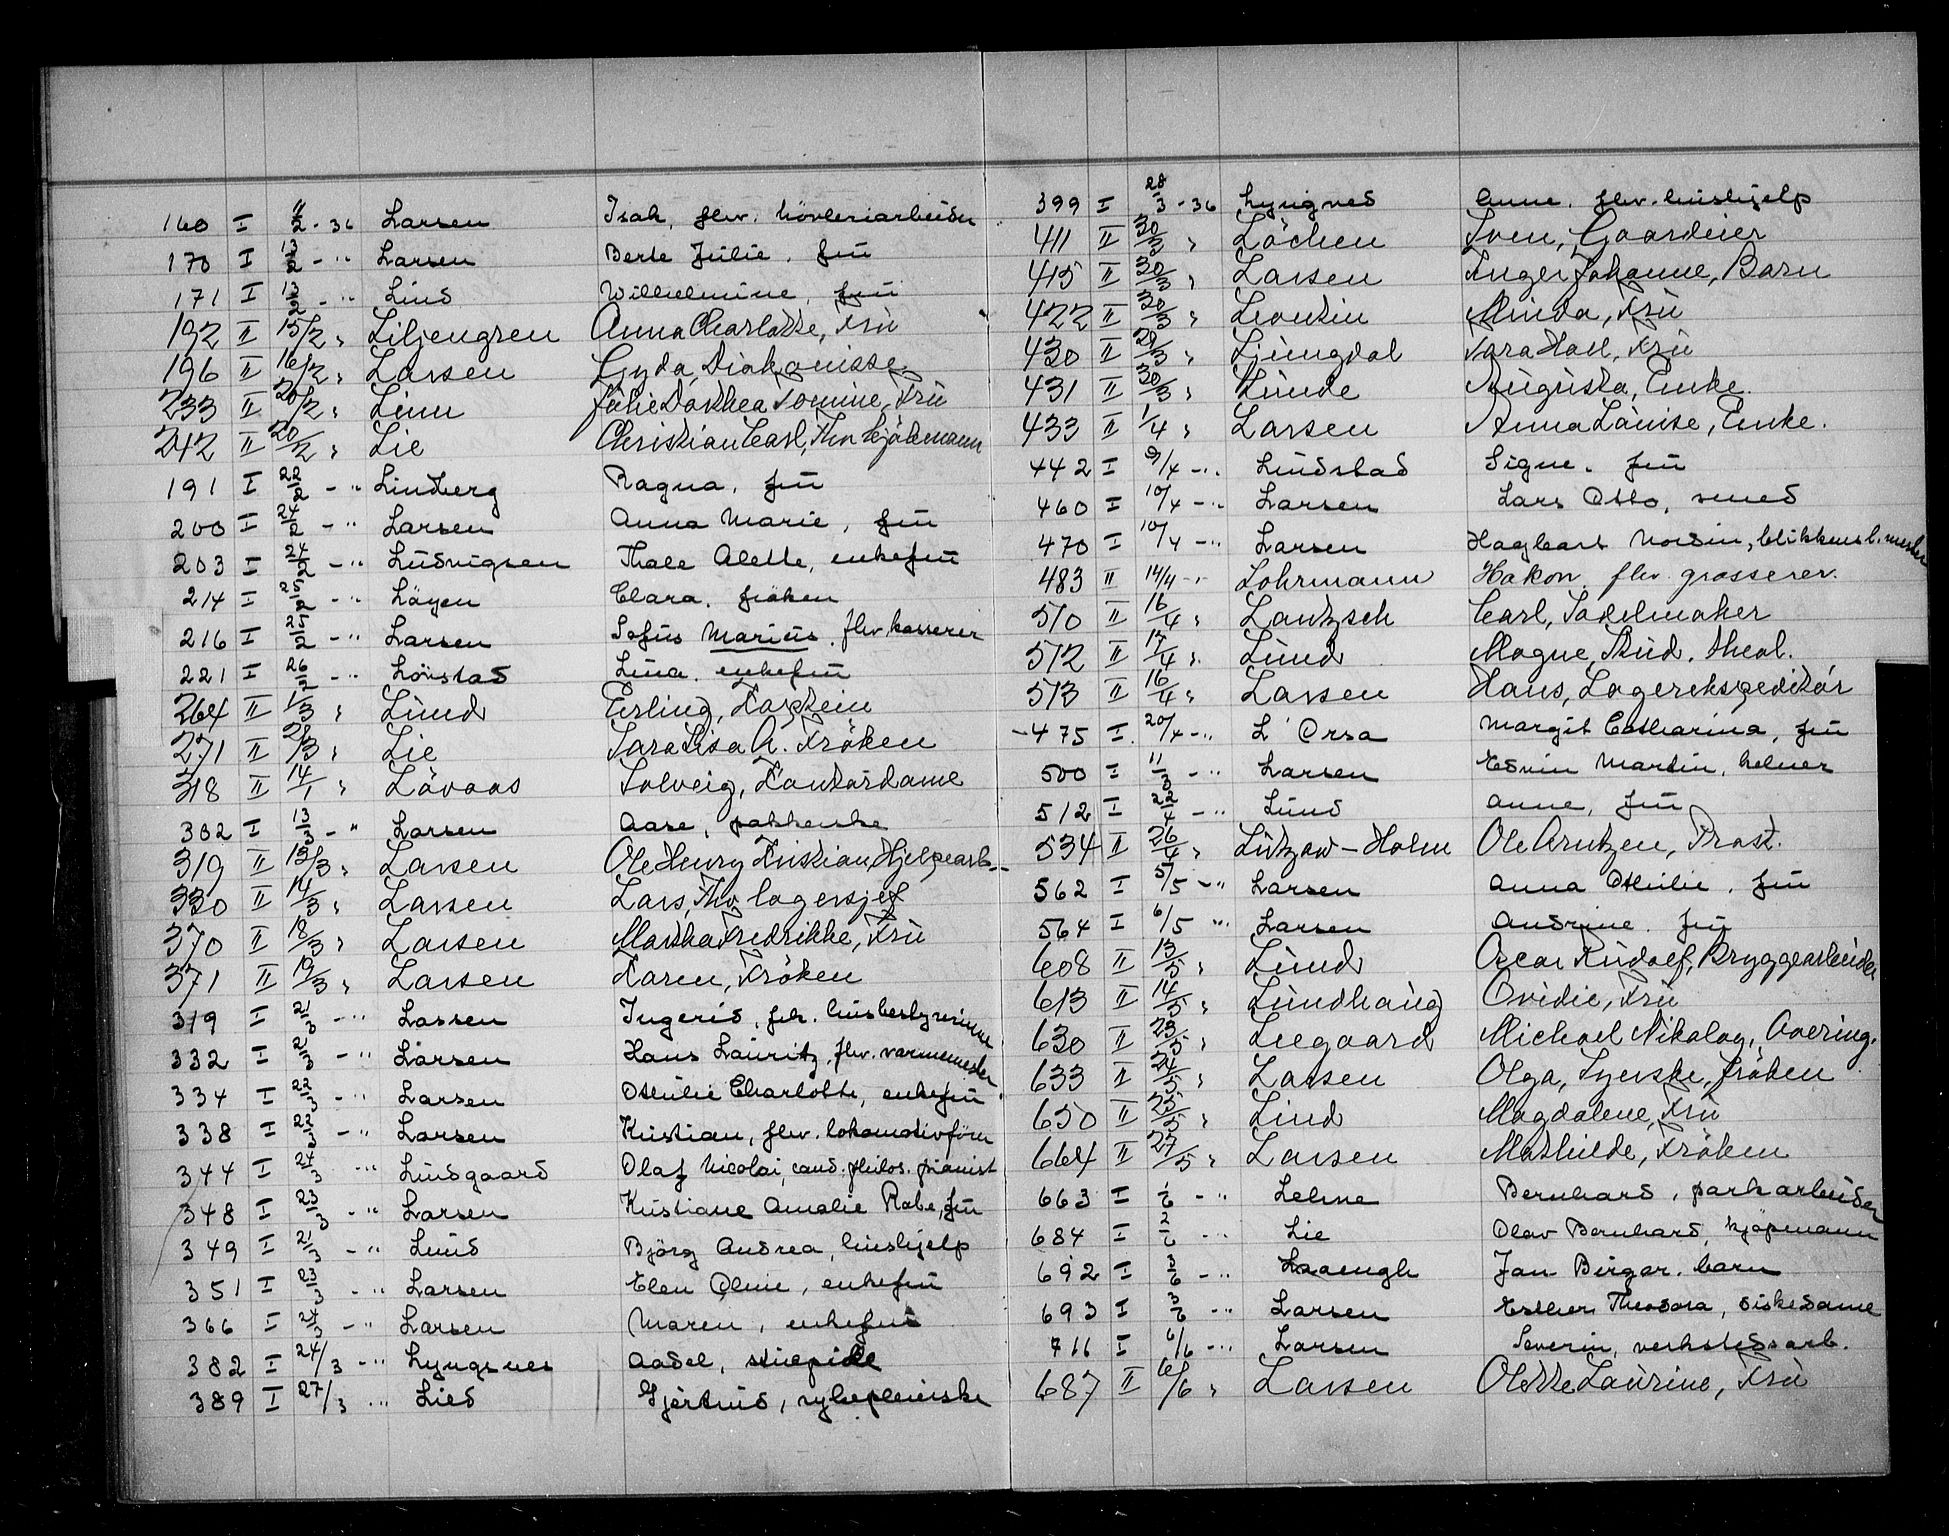 160 I 11/2 - 36 Larsen Isak, fhv. hövleriarbeider
170 I 13/2 - " Larsen Berte Julie, fru
171 I 13/2 - " Lind Wilhelmine, fru
192 II 15/2 " Liljengren Anna Charlotte, Fru
196 II 16/2 " Larsen Gyda, Diakonisse
233 II 20/2 " Linn Julie Dorthea Tomine, Fru
242 II 20/2 " Lie Christian Carl, Fhv kjöbmann
191 I 22/2 - " Lindberg Ragna, fru
200 I 24/2 - " Larsen Anna Marie, fru
203 I 24/2 - " Ludvigsen Thale Alette, enkefru
214 I 25/2 - " Löyen Clara, fröken
216 I 25/2 - " Larsen Sofus Marius, fhv. kasserer
221 I 26/2 - " Lövstad Lina, enkefru
264 II 1/3 " Lund Erling, Kaptein
271 II 2/3 " Lie Sara Lisa A. Fröken
318 II 14/1 " Lövaas Solveig, Kontordame
302 I 13/3 - " Larsen Aase, pakkerske
319 II 13/3 " Larsen Ole Henry Kristian, Hjelpearb.
330 II 14/3 " Larsen Lars, Fhv lagersjef
370 II 18/3 " Larsen Martha Fredrikke, Fru
371 II 19/3 " Larsen Karen, Fröken
319 I 21/3 - " Larsen Ingerid, fhv. husbestyrerinne
332 I 21/3 - " Larsen Hans Lauritz, fhv. varmemester
334 I 22/3 - " Larsen Othilie Charlotte, enkefru
338 I 22/3 - " Larsen Kristian, fhv. lokomotivförer
344 I 24/3 " Lindgaard Olaf Nicolai, cand. philos. pianist
348 I 23/3 - " Larsen Kristiane Amalie Rabe, fru
349 I 21/3 - " Lund Björg Andrea, hushjelp
351 I 23/3 - " Larsen Elen Oline, enkefru
366 I 24/3 - " Larsen Maren, enkefru
382 I 24/3 - " Lyngsnes Aadel, stuepike
389 I 27/3 " Lied Gjertrud, sykepleierske
399 I 28/3 - 36 Lyngved Anne, fhv. hushjelp
411 II 30/3 " Löchen Sven, Gaardeier
415 II 30/3 " Larsen Inger Johanne, Barn
422 II 30/3 " Leontin Minda, Fru
430 II 29/3 " Ljungdal Tora Hall, Fru
431 II 30/3 " Lunde Augusta, Enke.
433 II 1/4 " Larsen Anna Louise, Enke.
442 I 9/4 - " Lindstad Signe, fru
460 I 10/4 - " Larsen Lars Otto, smed
470 I 10/4 - " Larsen Hagbart Nordin, blikkensl. mester
483 II 14/4 - " Lohrmann Hakon, fhv. grosserer.
510 II 16/4 " Lantzsch Carl, Sadelmaker
512 II 17/4 " Lund Magne, Stud. theol.
513 II 16/4 " Larsen Hans, Lagerekspeditör
- 475 I 20/4 - " L'Orsa Margit Catharina, fru
500 I 11/3 - " Larsen Edvin Martin, kelner
512 I 22/4 - " Lund Anne, fru
534 II 26/4 " Lützow-Holm Ole Arntzen, Prost.
562 I 5/5 - " Larsen Anna Othilie, fru
564 I 6/5 " Larsen Andrine, fru
608 II 13/5 " Lund Oscar Rudolf, Bryggearbeider
613 II 14/5 " Lundhaug Ovidie, Fru
630 II 23/5 " Leegaard Michael Nikolay, Overing.
633 II 24/5 " Larsen Olga, Syerske, fröken
650 II 25/5 " Lind Magdalene, Fru
664 II 27/5 " Larsen Mathilde, Fröken
663 I 1/6 - " Lehne Bernhard, parkarbeider
684 I 2/6 - " Lie Olav Bernhard, kjöpmann
692 I 3/6 - " Jan Birger, barn
693 I 3/6 - " Larsen Esther Theodora, diskedame
711 I 6/6 - " Larsen Severin, verkstedsarb.
687 II 6/6 " Larsen Olette Laurine, Fru